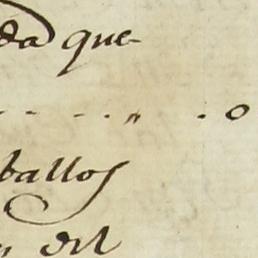 da que
ballos
del